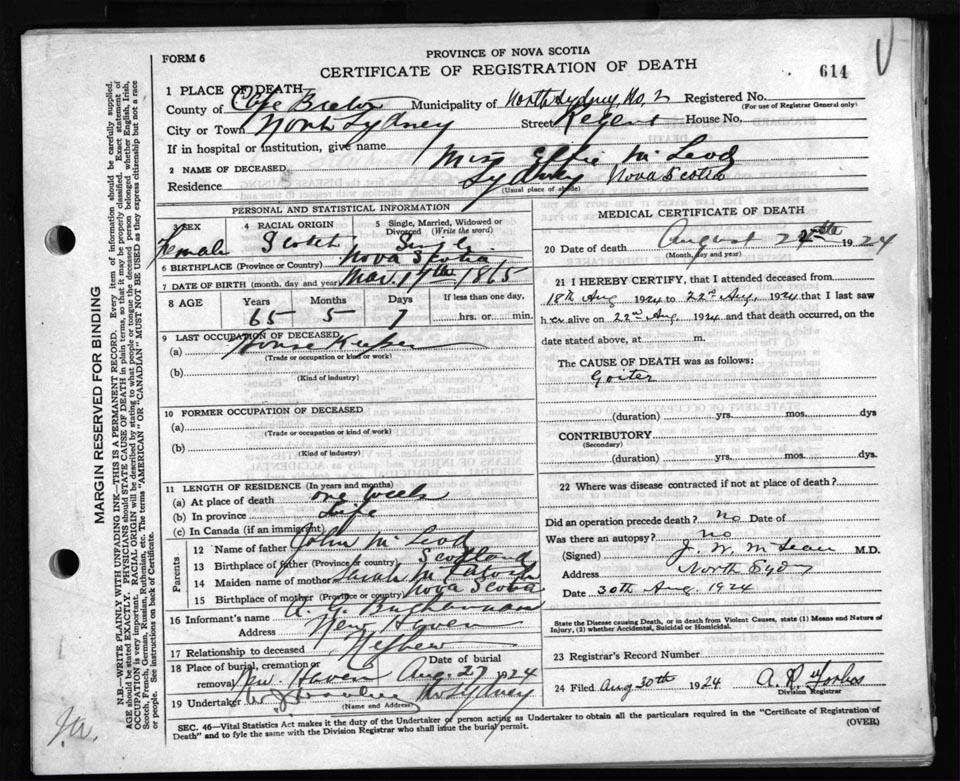 FORM 6
PROVINCE OF NOVA SCOTIA
CERTIFICATE OF REGISTRATION OF DEATH
614
1 PLACE OF DEATH—
County of Cape Breton Municipality of North Sydney No. 2 Registered No.
(For use of Registrar General only)
City or Town North Sydney Street Regent House No.
If in hospital or institution, give name
2 NAME OF DECEASED Miss Effie McLeod
Residence Sydney Nova Scotia
(Usual place of abode)
PERSONAL AND STATISTICAL INFORMATION
3 SEX 4 RACIAL ORIGIN 5 Single, Married, Widowed or Divorced (Write the word)
Female Scotch Single
6 BIRTHPLACE (Province or Country) Nova Scotia
7 DATE OF BIRTH (month, day and year) Mar. 17th 1865
8 AGE Years Months Days If less than one day,
65 5 7 hrs. or min.
9 LAST OCCUPATION OF DECEASED
(a) House Keeper
(Trade or occupation or kind of work)
(b)
(Kind of industry)
10 FORMER OCCUPATION OF DECEASED
(a)
(Trade or occupation or kind of work)
(b)
(Kind of industry)
11 LENGTH OF RESIDENCE (In years and months)
(a) At place of death one week
(b) In province Life
(c) In Canada (if an immigrant)
Parents
12 Name of father John McLeod
13 Birthplace of father (Province or country) Scotland
14 Maiden name of mother Sarah
15 Birthplace of mother (Province or country) Nova Scotia
16 Informant's name A. G. Buchanan
Address New Haven
17 Relationship to deceased Nephew
18 Place of burial, cremation or removal New Haven Date of burial Aug. 27 1924
19 Undertaker No Sydney
(Name and Address)
MEDICAL CERTIFICATE OF DEATH
20 Date of death August 1924
(Month, day and year)
21 I HEREBY CERTIFY, that I attended deceased from
18th Aug 1924 to 22nd Aug, 1924 that I last saw
her alive on 22nd Aug, 1924 and that death occurred, on the
date stated above, at m.
The CAUSE OF DEATH was as follows:
Goiter
(duration) yrs. mos. dys
CONTRIBUTORY
(Secondary)
(duration) yrs. mos. dys.
22 Where was disease contracted if not at place of death?
Did an operation precede death? No Date of
Was there an autopsy? No
(Signed) J. W. McLean M.D.
Address North Sydney
Date 30th Aug 1924
State the Disease causing Death, or in death from Violent Causes, state (1) Means and Nature of
Injury, (2) whether Accidental, Suicidal or Homicidal.
23 Registrar's Record Number
24 Filed Aug 30th 1924 A. R. Forbes
Division Registrar
SEC. 46—Vital Statistics Act makes it the duty of the Undertaker or person acting as Undertaker to obtain all the particulars required in the "Certificate of Registration of
Death" and to fyle the same with the Division Registrar who shall issue the burial permit.
(OVER)
MARGIN RESERVED FOR BINDING
N.B.—WRITE PLAINLY WITH UNFADING INK—THIS IS A PERMANENT RECORD. Every item of information should be carefully supplied.
AGE should be stated EXACTLY. PHYSICIANS should STATE CAUSE OF DEATH in plain terms, so that it may be properly classified. Exact statement of
OCCUPATION is very important. RACIAL ORIGIN will be described by stating to what people or tongue the deceased person belonged whether English, Irish,
Scotch, French, German, Russian, Ruthenian, etc. The terms "AMERICAN" OR "CANADIAN" MUST NOT BE USED as they express citizenship but not a race
or people. See instructions on back of Certificate.